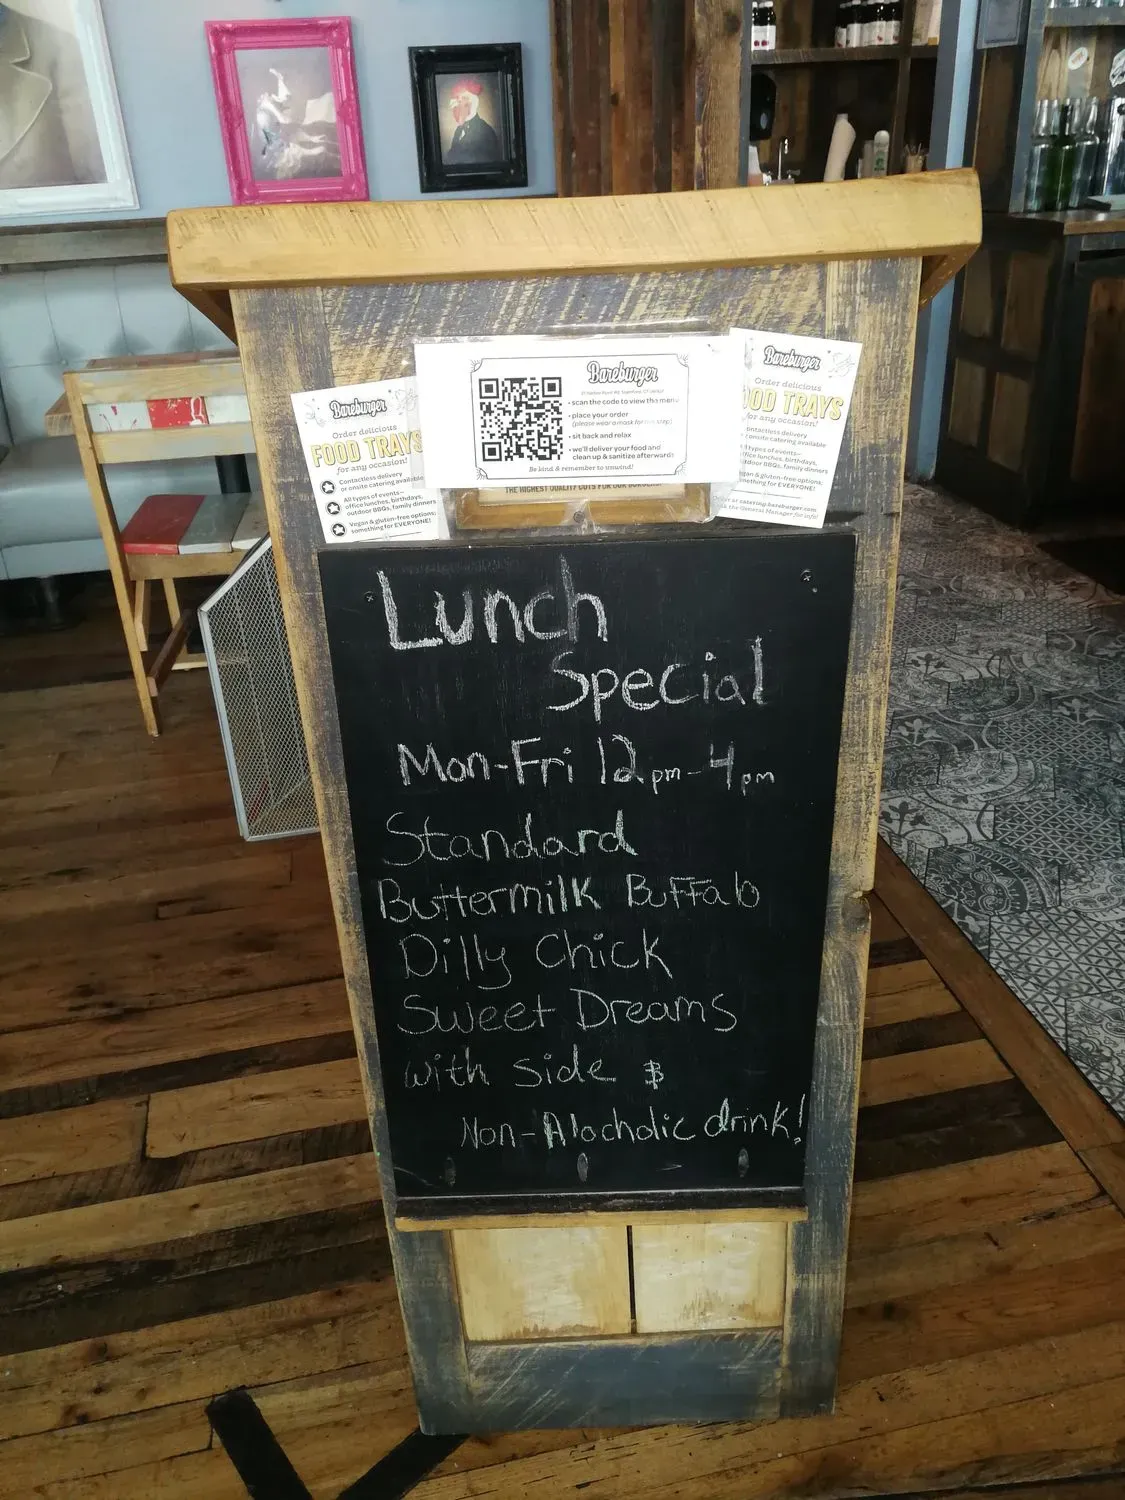 Bareburger
scan the code to view the menu
place your order
(please wear a mask for this step)
sit back and relax
we'll deliver your food and
clean up & sanitize afterward!
Be kind & remember to unwind!
THE HIGHEST QUALITY CUTS FOR OUR
Bareburger
Order delicious
FOOD TRAYS
for any occasion!
Contactless delivery
or onsite catering available
All types of events—
office lunches, birthdays,
outdoor BBQs, family dinners
Vegan & gluten-free options;
something for EVERYONE!
Bareburger
Order delicious
OOD TRAYS
for any occasion!
ontactless delivery
onsite catering available
ll types of events—
ffice lunches, birthdays,
utdoor BBQs, family dinners
egan & gluten-free options;
mething for EVERYONE!
Order at catering.bareburger.com
ask the General Manager for info!
Lunch
Special
Mon-Fri 12pm-4pm
Standard
Buttermilk Buffalo
Dilly Chick
Sweet Dreams
with side $
Non-Alocholic drink!